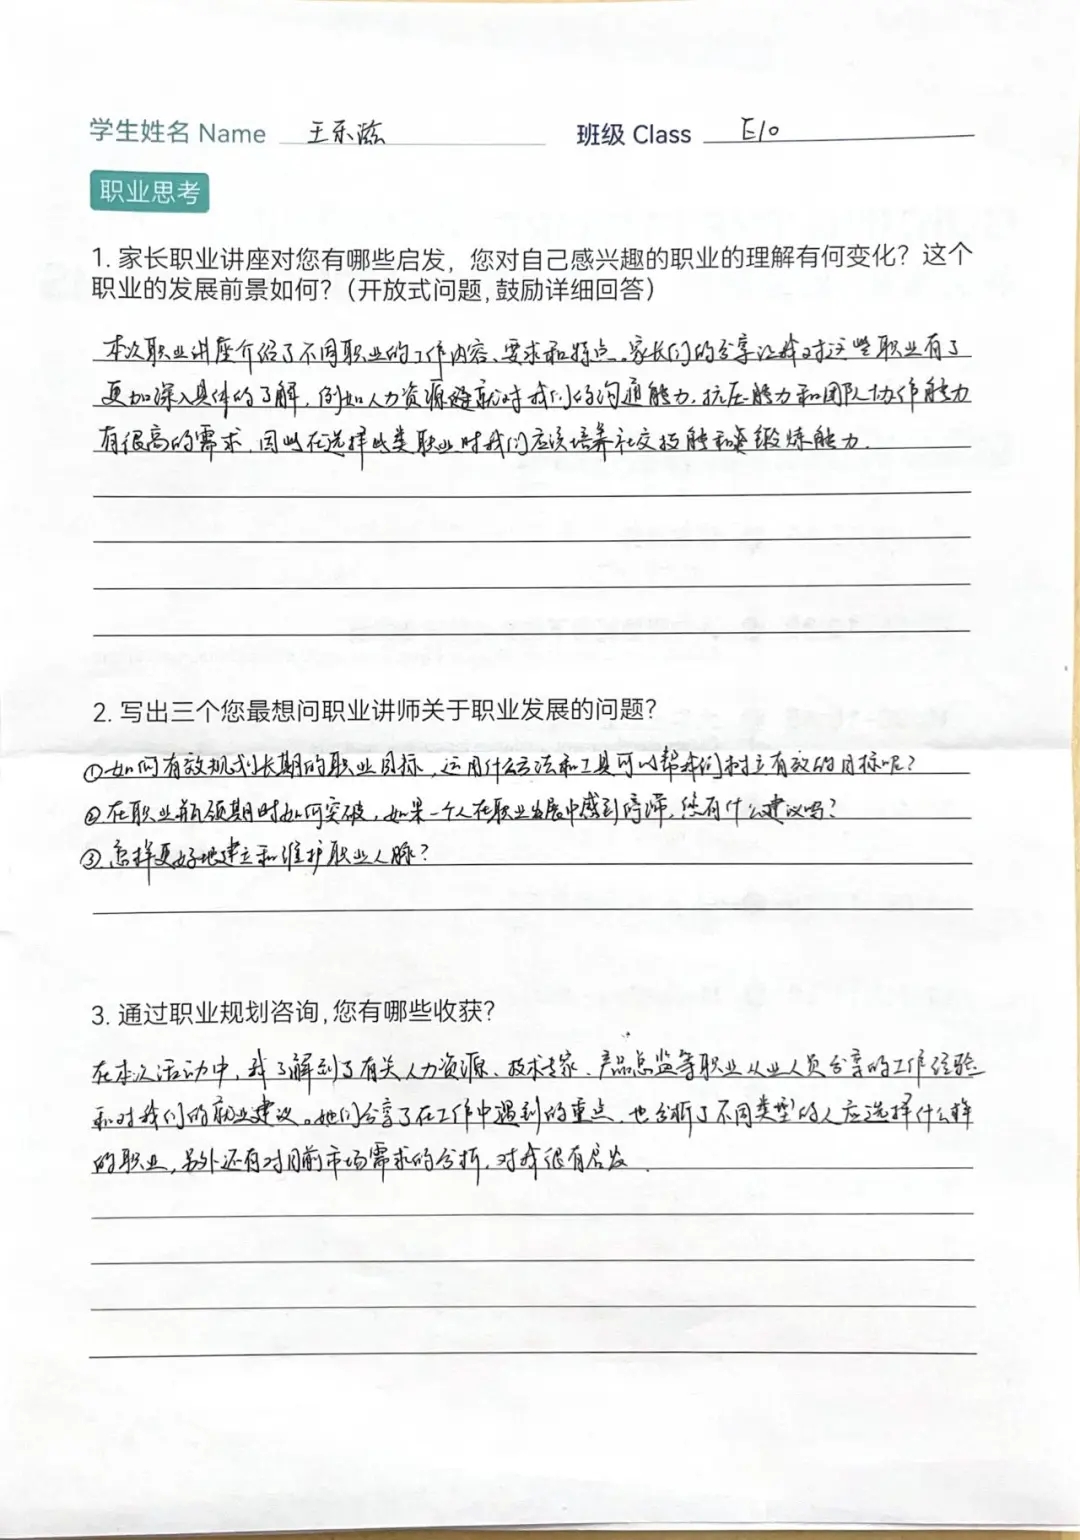 学生姓名 Name 王乐滋 班级 Class E10
职业思考
1. 家长职业讲座对您有哪些启发，您对自己感兴趣的职业的理解有何变化？这个
职业的发展前景如何？（开放式问题, 鼓励详细回答）
本次职业讲座介绍了不同职业的工作内容、要求和特点。家长们的分享让我对这些职业有了
更加深入具体的了解，例如人力资源就对我们的沟通能力、抗压能力和团队协作能力
有很高的需求，因此在选择此类职业时我们应该培养社交技能和锻炼能力.
2. 写出三个您最想问职业讲师关于职业发展的问题？
①如何有效规划长期的职业目标，运用什么方法和工具可以帮我们树立有效的目标呢？
②在职业瓶颈期时如何突破，如果一个人在职业发展中感到停滞，您有什么建议吗？
③怎样更好地建立和维护职业人脉？
3. 通过职业规划咨询, 您有哪些收获？
在本次活动中，我了解到了有关人力资源、技术专家、产品总监等职业从业人员分享的工作经验
和对我们的就业建议。她们分享了在工作中遇到的重点，也分析了不同类型的人应选择什么样
的职业，另外还有对目前市场需求的分析，对我很有启发.